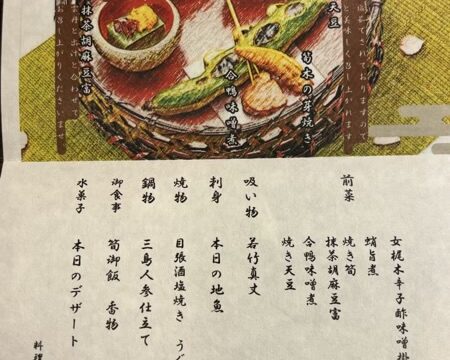 天豆
筍木の芽焼き
合鴨味噌煮
抹茶胡麻豆富
前菜
女梶木辛子酢味噌掛
蛸旨煮
焼き筍
抹茶胡麻豆富
合鴨味噌煮
焼き天豆
吸い物 若竹真丈
刺身 本日の地魚
焼物 目張酒塩焼き うぐ
鍋物 三島人参仕立て
御食事 筍御飯 香物
水菓子 本日のデザート
料理